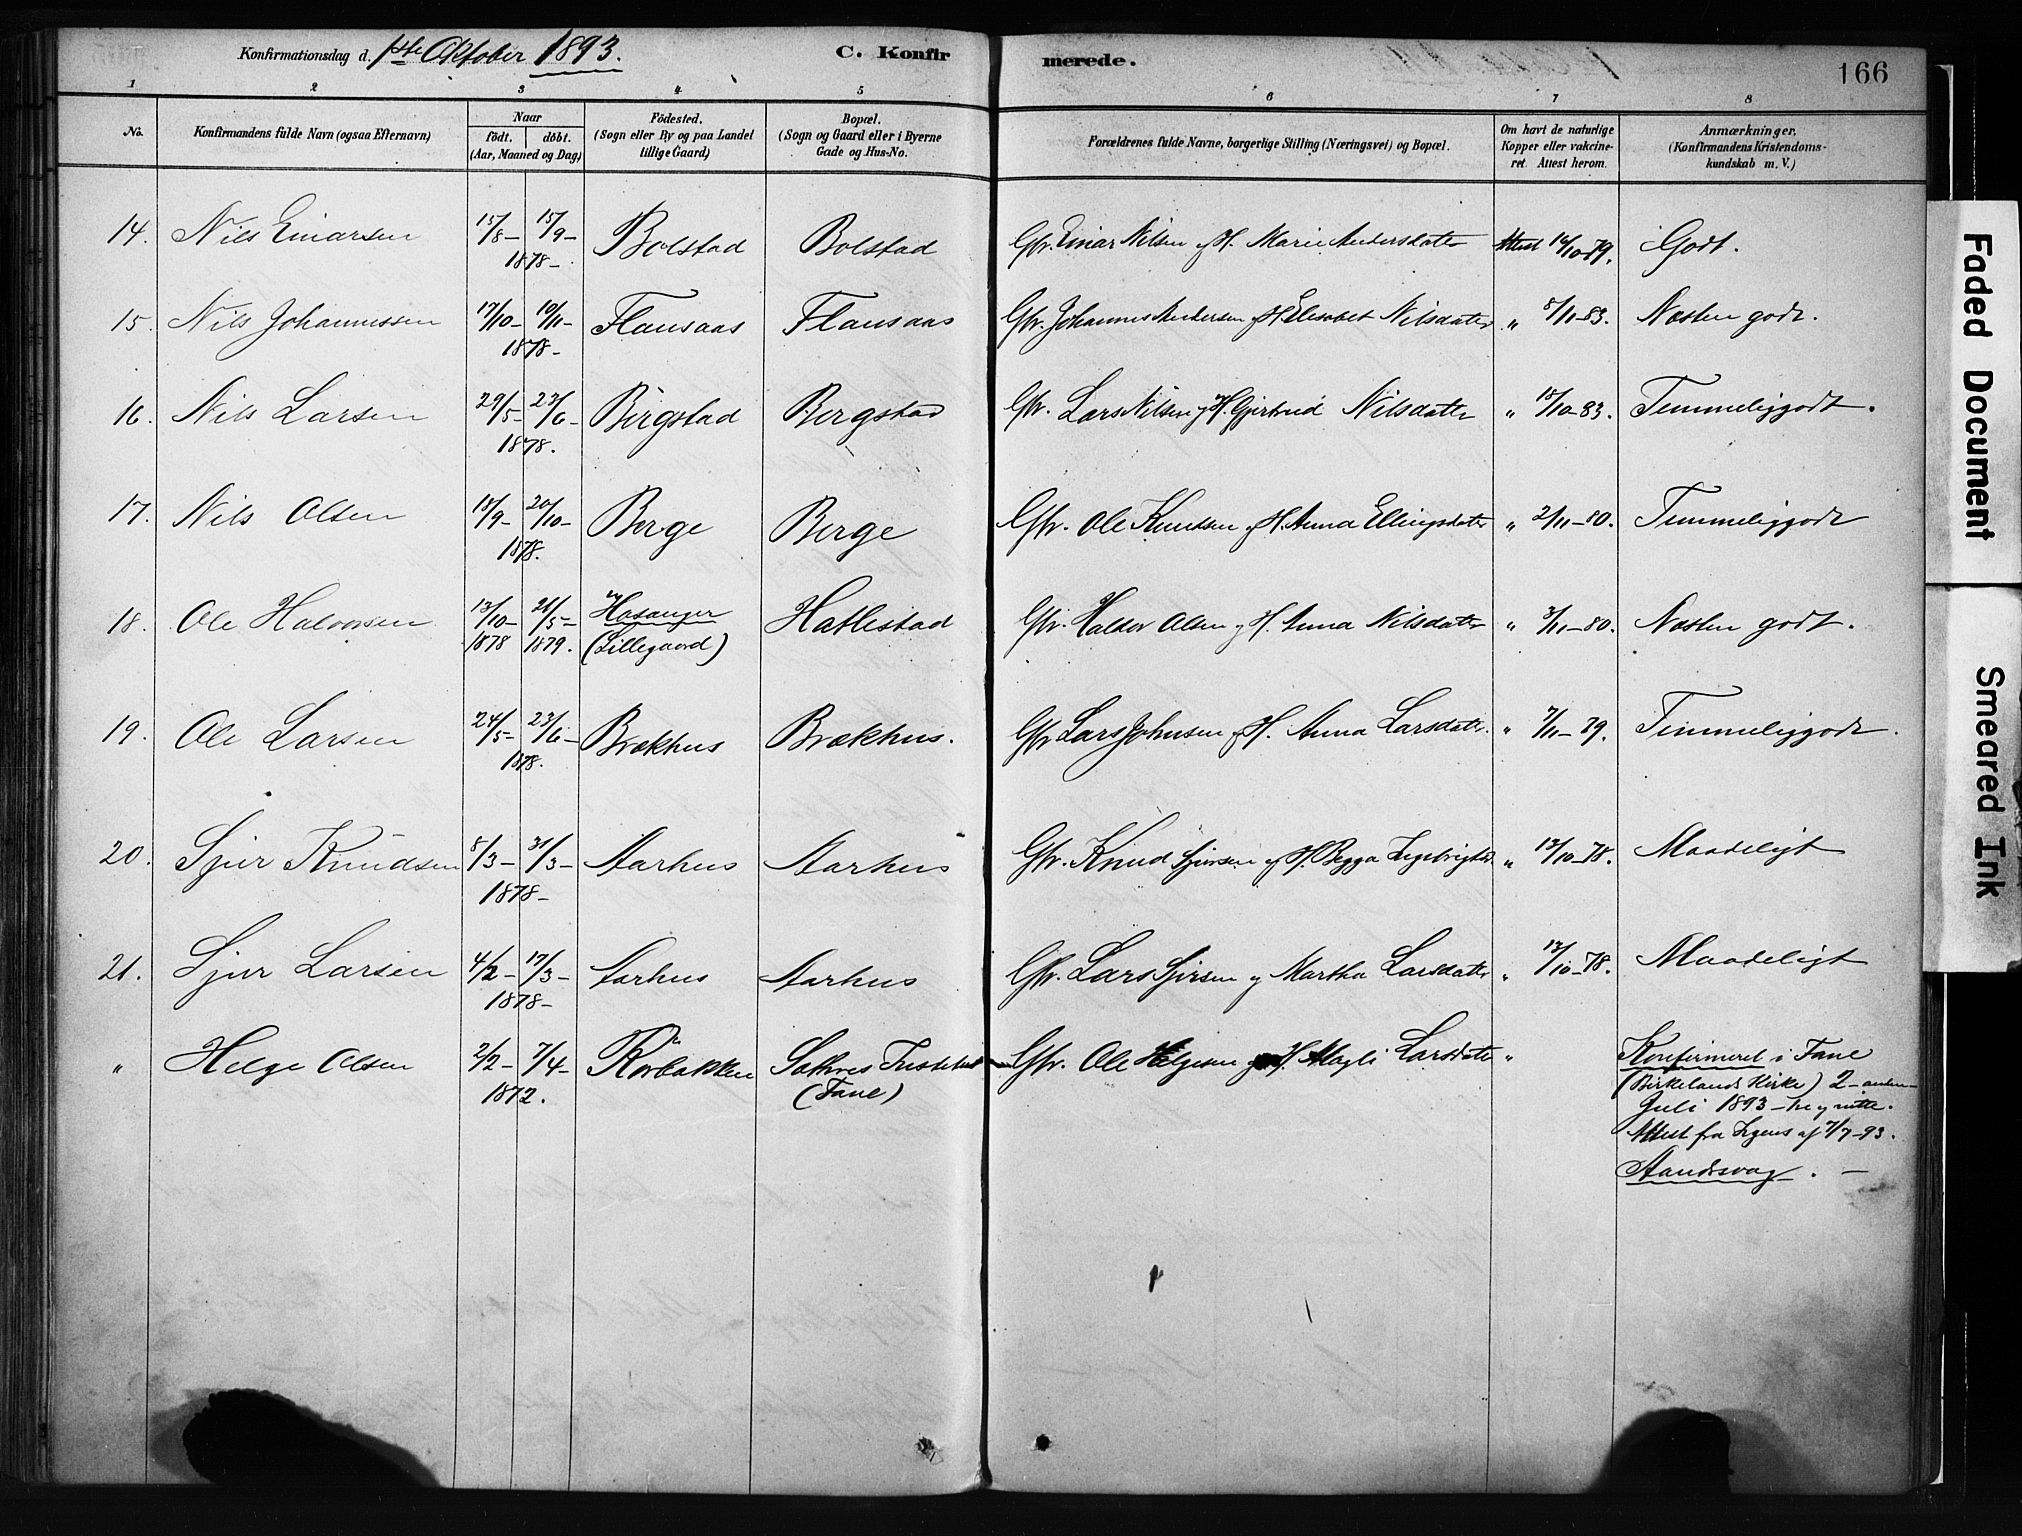 Konfirmationsdag d. 1ste Oktober 1893.
C. Konfir
merede.
166
1 2 3 4 5 6 7 8
No.
Konfirmandens fulde Navn (ogsaa Efternavn)
Naar
födt. döbt.
(Aar, Maaned og Dag)
Födested.
(Sogn eller By og paa Landet
tillige Gaard)
Bopæl.
(Sogn og Gaard eller i Byerne
Gade og Hus-No.
Forældrenes fulde Navne, borgerlige Stilling (Næringsvei) og Bopæl.
Om havt de naturlige
Kopper eller vakcine-
ret. Attest herom.
Anmærkninger.
(Konfirmandens Kristendoms-
kundskab m. V.)
14. Nils Einarsen 15/8- 15/9- Bolstad Bolstad Gbr. Einar Nilsen og H. Marie Andersdatter Attest 16/10-79. Godt.
1878-
15. Nils Johannessen 17/10- 10/11- Flausaas Flausaas Gbr. Johannes Andersen og H. Elisabet Nilsdatter " 8/11-83. Næsten godt.
1878-
16. Nils Larsen 29/5- 23/6- Bergstad Bergstad Gbr. Lars Nilsen og H. Gjertrud Nilsdatter " 18/10-83. Temmeliggodt.
1878.
17. Nils Olsen 18/9- 20/10- Berge Berge Gbr. Ole Knutsen og H. Anna Ellingsdatter " 2/11-80. Temmeliggodt
1878.
18. Ole Halvorsen 13/10- 21/5- Hosanger Hatlestad Gbr. Haldor Olsen og H. Anna Nilsdatter " 3/11-80. Næsten godt.
1878 1879. (Lillegaard)
19. Ole Larsen 24/5- 23/6- Brækhus Brækhus. Gbr Lars Johnsen og H. Anna Larsdatter. " 7/11-79. Temmeliggodt.
1878.
20. Sjur Knudsen 8/3- 31/3- Aarhus Aarhus Gbr. Knud Sjursen og H. Begga " 13/10-78. Maadeligt
1878-
21. Sjur Larsen 4/2- 17/3- Aarhus Aarhus Gbr. Lars Sjursen og Martha Larsdatter " 13/10-78. Maadeligt
1878-
" Helge Olsen 2/2- 7/4- Rørbakken Gbr. Ole Helgesen og H. Magli Larsdatter " Konfirmeret i Fane
1872. (Fane) (Birkelands Kirke) 2-anden-
Juli 1893
Attest fra af 7/7-93.
Aandssvag. -
Faded Document
Smeared Ink